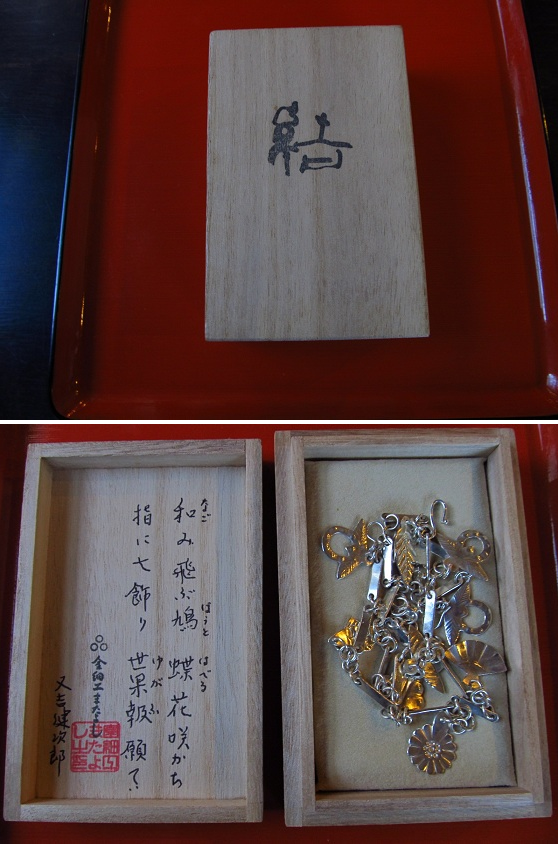 結
和み飛ぶ鳩 蝶花咲かち
なご
ほうと
はべる
指に七飾り 世果報願て
ゆがふ
金細工またよし
又吉健次郎